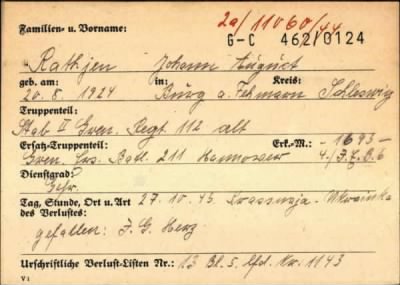 2a/11060/44
Familien- u. Vorname:
G-C 462/0124
Rathjen Johann August
geb. am: in: Kreis:
20. 8. 1924 Burg a. Fehmarn Schleswig
Truppenteil:
Stab II Gren. Regt. 112 alt
Ersatz-Truppenteil: Erk.-M.: -1693-
Gren. Ers. Batl. 211 Hannover 4./J.E.B. 6
Dienstgrad:
Gefr.
Tag, Stunde, Ort u. Art 27. 10. 43. Krassnaja-Ukrainka
des Verlustes:
gefallen: J. G. Herz
Urschriftliche Verlust-Listen Nr.: 13 Bl. 5. lfd. Nr. 1143
V 1